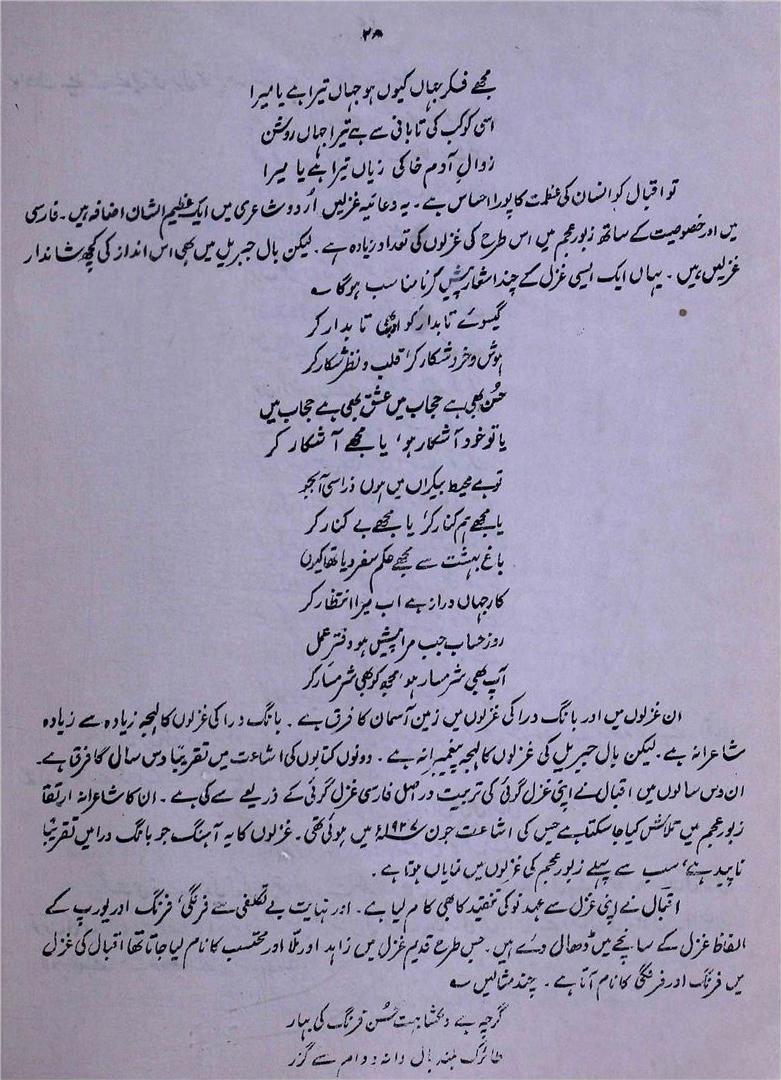 ۲۸
مجھے فکر جہاں کیوں ہو جہاں تیرا ہے یا میرا
اسی کوکب کی تابانی سے ہے تیرا جہاں روشن
زوالِ آدم خاکی زیاں تیرا ہے یا میرا
تو اقبال کو انسان کی عظمت کا پورا احساس ہے ۔ یہ دعائیہ غزلیں اُردو شاعری میں ایک عظیم الشان اضافہ ہیں ۔ فارسی
میں اور خصوصیت کے ساتھ زبور عجم میں اس طرح کی غزلوں کی تعداد زیادہ ہے ۔ لیکن بال جبریل میں بھی اس انداز کی کچھ شاندار
غزلیں ہیں ۔ یہاں ایک ایسی غزل کے چند اشعار پیش کرنا مناسب ہوگا ؎
گیسوئے تابدار کو اور بھی تابدار کر
ہوش و خرد شکار کر، قلب و نظر شکار کر
حُسن بھی ہے حجاب میں عشق بھی ہے حجاب میں
یا تو خود آشکار ہو، یا مجھے آشکار کر
تو ہے محیط بیکراں میں ہوں ذرا سی آبجو
یا مجھے ہم کنار کر، یا مجھے بے کنار کر
باغِ بہشت سے مجھے حکم سفر دیا تھا کیوں
کار جہاں دراز ہے اب میرا انتظار کر
روز حساب جب مرا پیش ہو دفتر عمل
آپ بھی شرمسار ہو، مجھ کو بھی شرمسار کر
ان غزلوں میں اور بانگ درا کی غزلوں میں زمین آسمان کا فرق ہے ۔ بانگ درا کی غزلوں کا لہجہ زیادہ سے زیادہ
شاعرانہ ہے ۔ لیکن بال جبریل کی غزلوں کا لہجہ پیغمبرانہ ہے ۔ دونوں کتابوں کی اشاعت میں تقریباً دس سال کا فرق ہے ۔
ان دس سالوں میں اقبال نے اپنی غزل گوئی کی تربیت دراصل فارسی غزل گوئی کے ذریعے سے کی ہے ۔ ان کا شاعرانہ ارتقا
زبور عجم میں تلاش کیا جا سکتا ہے جس کی اشاعت جون ۱۹۲۷ء میں ہوئی تھی ۔ غزلوں کا یہ آہنگ جو بانگ درا میں تقریباً
ناپید ہے، سب سے پہلے زبور عجم کی غزلوں میں نمایاں ہوتا ہے ۔
اقبال نے اپنی غزل سے عہد نو کی تنقید کا بھی کام لیا ہے ۔ اور نہایت بے تکلفی سے فرنگی، فرنگ اور یورپ کے
الفاظ غزل کے سانچے میں ڈھال دئے ہیں ۔ جس طرح قدیم غزل میں زاہد اور ملّا اور محتسب کا نام لیا جاتا تھا اقبال کی غزل
میں فرنگ اور فرنگی کا نام آتا ہے ۔ چند مثالیں ؎
گرچہ ہے دلکشا بہت حُسن فرنگ کی بہار
طائرک بلند بال دانہ و دام سے گزر